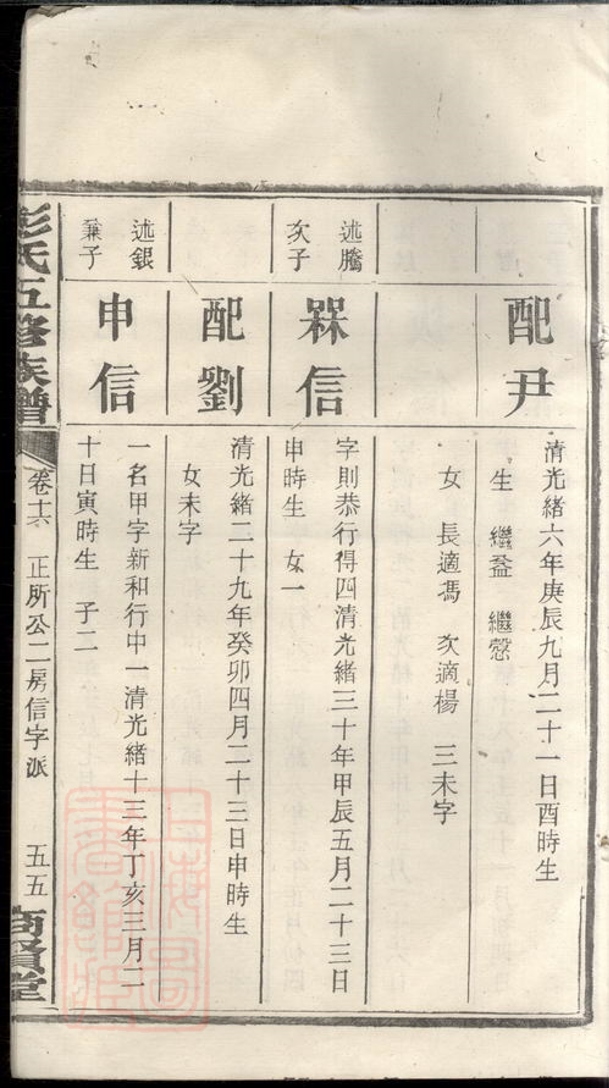 配尹
清光緒六年庚辰九月二十一日酉時生
生 繼益 繼愨
女 長適馮 次適楊 三未字
述騰
次子
槑信
字則恭行得四清光緒三十年甲辰五月二十三日
申時生 女一
配劉
清光緒二十九年癸卯四月二十三日申時生
女未字
述銀
兼子
申信
一名甲字新和行中一清光緒十三年丁亥三月二
十日寅時生 子二
彭氏五修族譜
卷十六 正所公二房信字派 五五
商賢堂